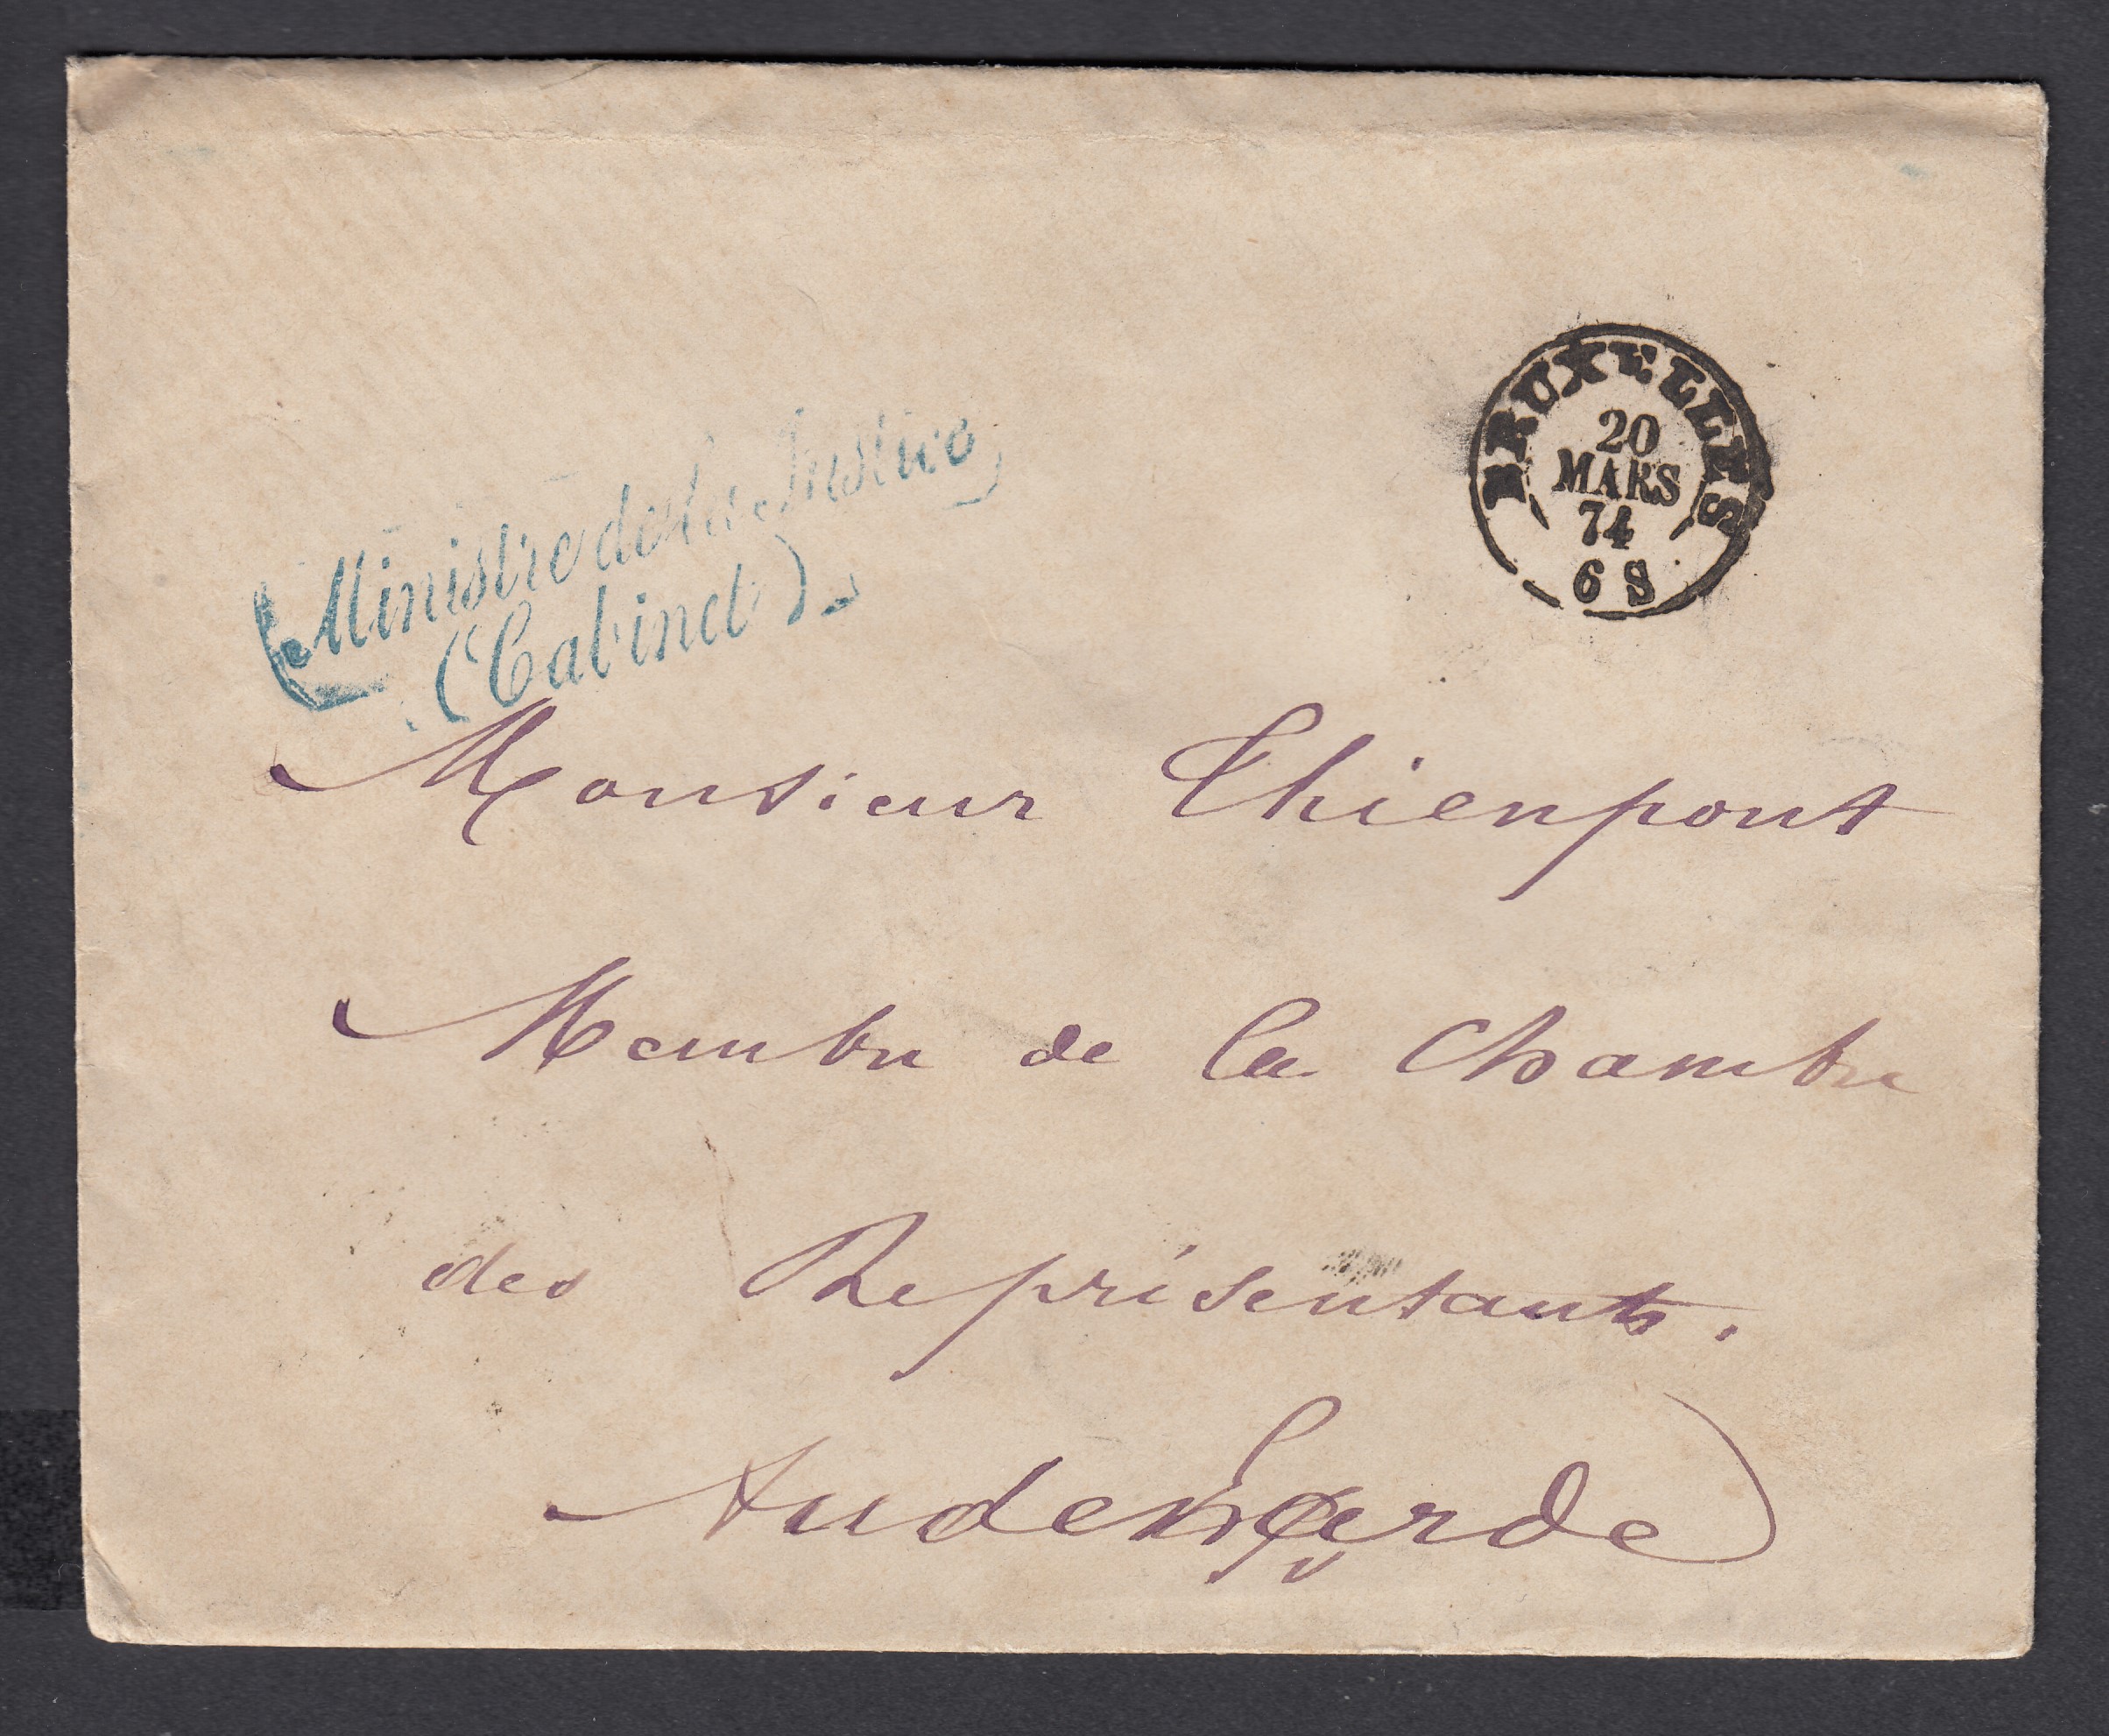 Ministre de la Justice
(Cabinet)
BRUXELLES
20
MARS
74
6 S
Monsieur Thienpont
Membre de la Chambre
des Représentants.
Audenarde